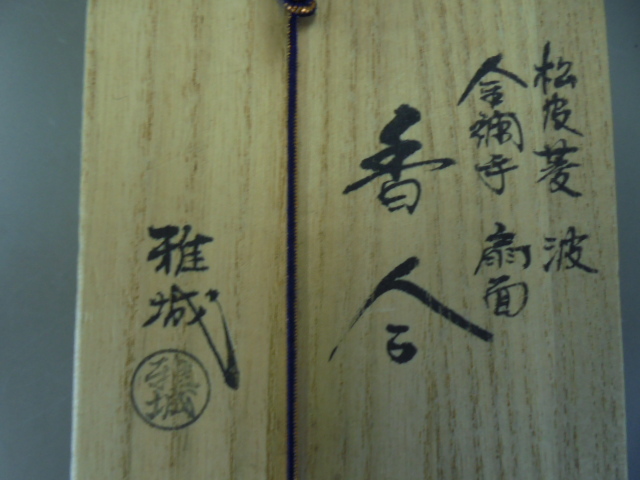 松皮菱 波
金襴手 扇面
香合
雅城
雅城